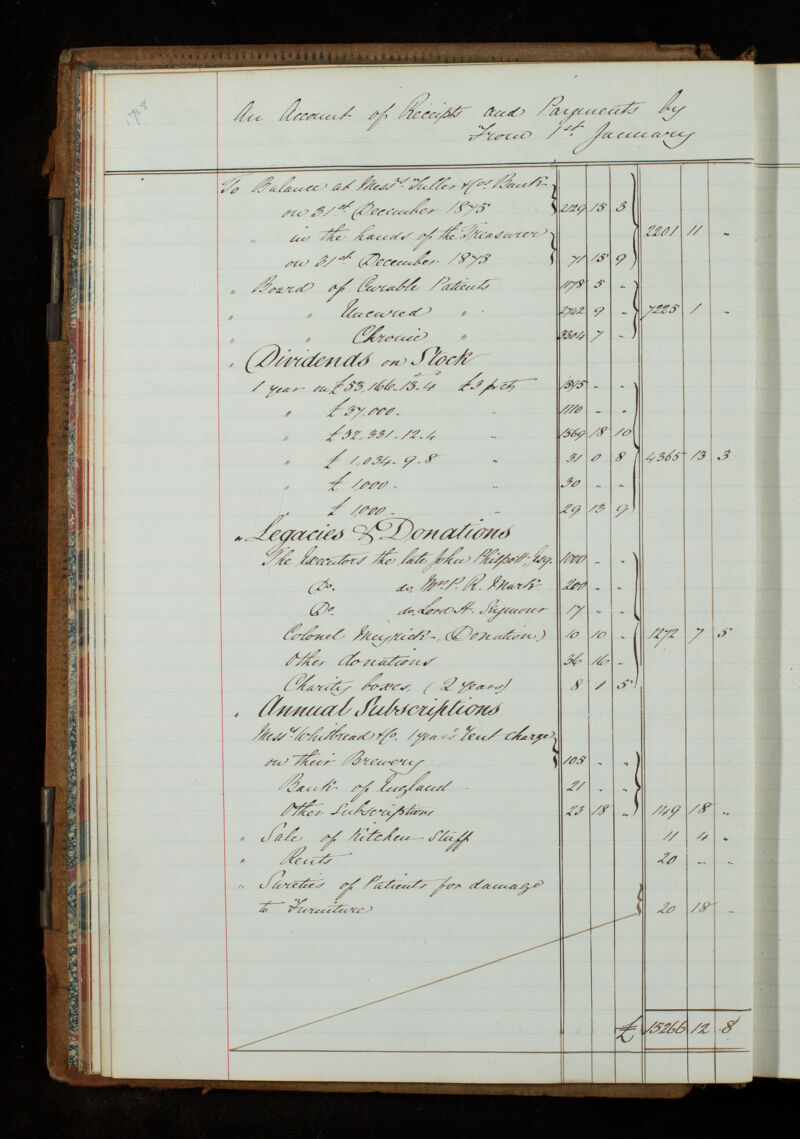 An Account of Receipts and Payments by
From 1st January
To Balance at Messrs. Fuller & Cos. Bank
on 31st December 1875 2129 15 3
" in the hands of the Treasurer 2201 11 "
on 31st December 1875 71 15 9
" Board of Curable Patients 1178 5 "
" " Uncured " 2742 9 " 7225 1 "
" " Chronic " 3304 7 "
" Dividends on Stock
1 year on £53,166.13.4 £3 p ct 1595 " "
" £37,000. " 1110 " "
" £52,331.12.4 " 1569 18 10
" £1,034.9.8 " 31 0 8 4365 13 3
" £1000. " 30 " "
" £1000. " 29 13 9
" Legacies & Donations
The Executors the late John Philpott, Esq. 1000 " "
Do. do. Mr. P. R. Mark 200 " "
Do. do. Lord H. Seymour 17 " "
Colonel Meyrick - (Donation) 10 10 " 1272 7 5
Other donations 36 16 "
Charity boxes. (2 years) 8 1 5
" Annual Subscriptions
Messrs. Whitbread & Co. 1 year's rent charge
on their Brewery 105 " "
Bank of England 21 " "
Other Subscriptions 23 18 " 149 18 "
" Sale of Kitchen Stuff 11 4 "
" Rents 20 " "
" Sureties of Patients for damage
to Furniture 20 18 "
£ 15266 12 8